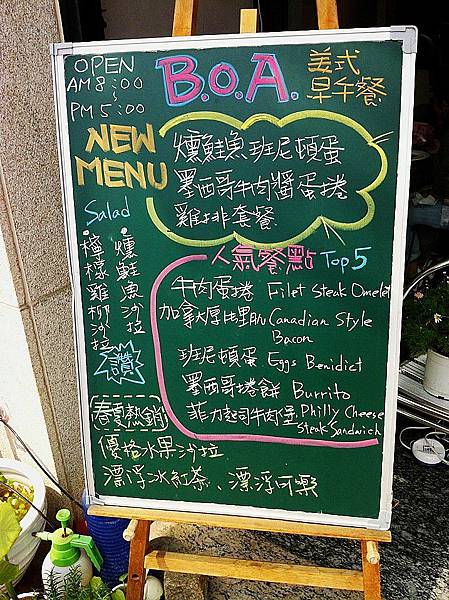 OPEN
AM 8:00
~
PM 5:00
B.O.A.
美式
早午餐
NEW
MENU
燻鮭魚班尼頓蛋
墨西哥牛肉醬蛋捲
雞排套餐
Salad
燻鮭魚沙拉
檸檬雞柳沙拉
讚
人氣餐點 Top 5
牛肉蛋捲 Filet Steak Omelet
加拿大厚比里肌 Canadian Style
Bacon
班尼頓蛋 Eggs Benidict
墨西哥捲餅 Burrito
菲力起司牛肉堡 Philly Cheese
Steak Sandwich
春夏熱銷
優格水果沙拉
漂浮冰紅茶、漂浮可樂